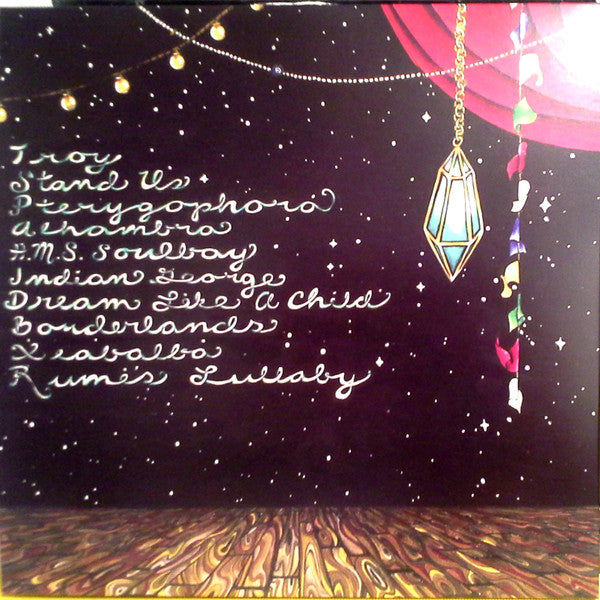 Troy
Stand Us
Pterygophora
Alhambra
H.M.S. Soulbay
Indian George
Dream Like A Child
Borderlands
Xiabalba
Rumi's Lullaby